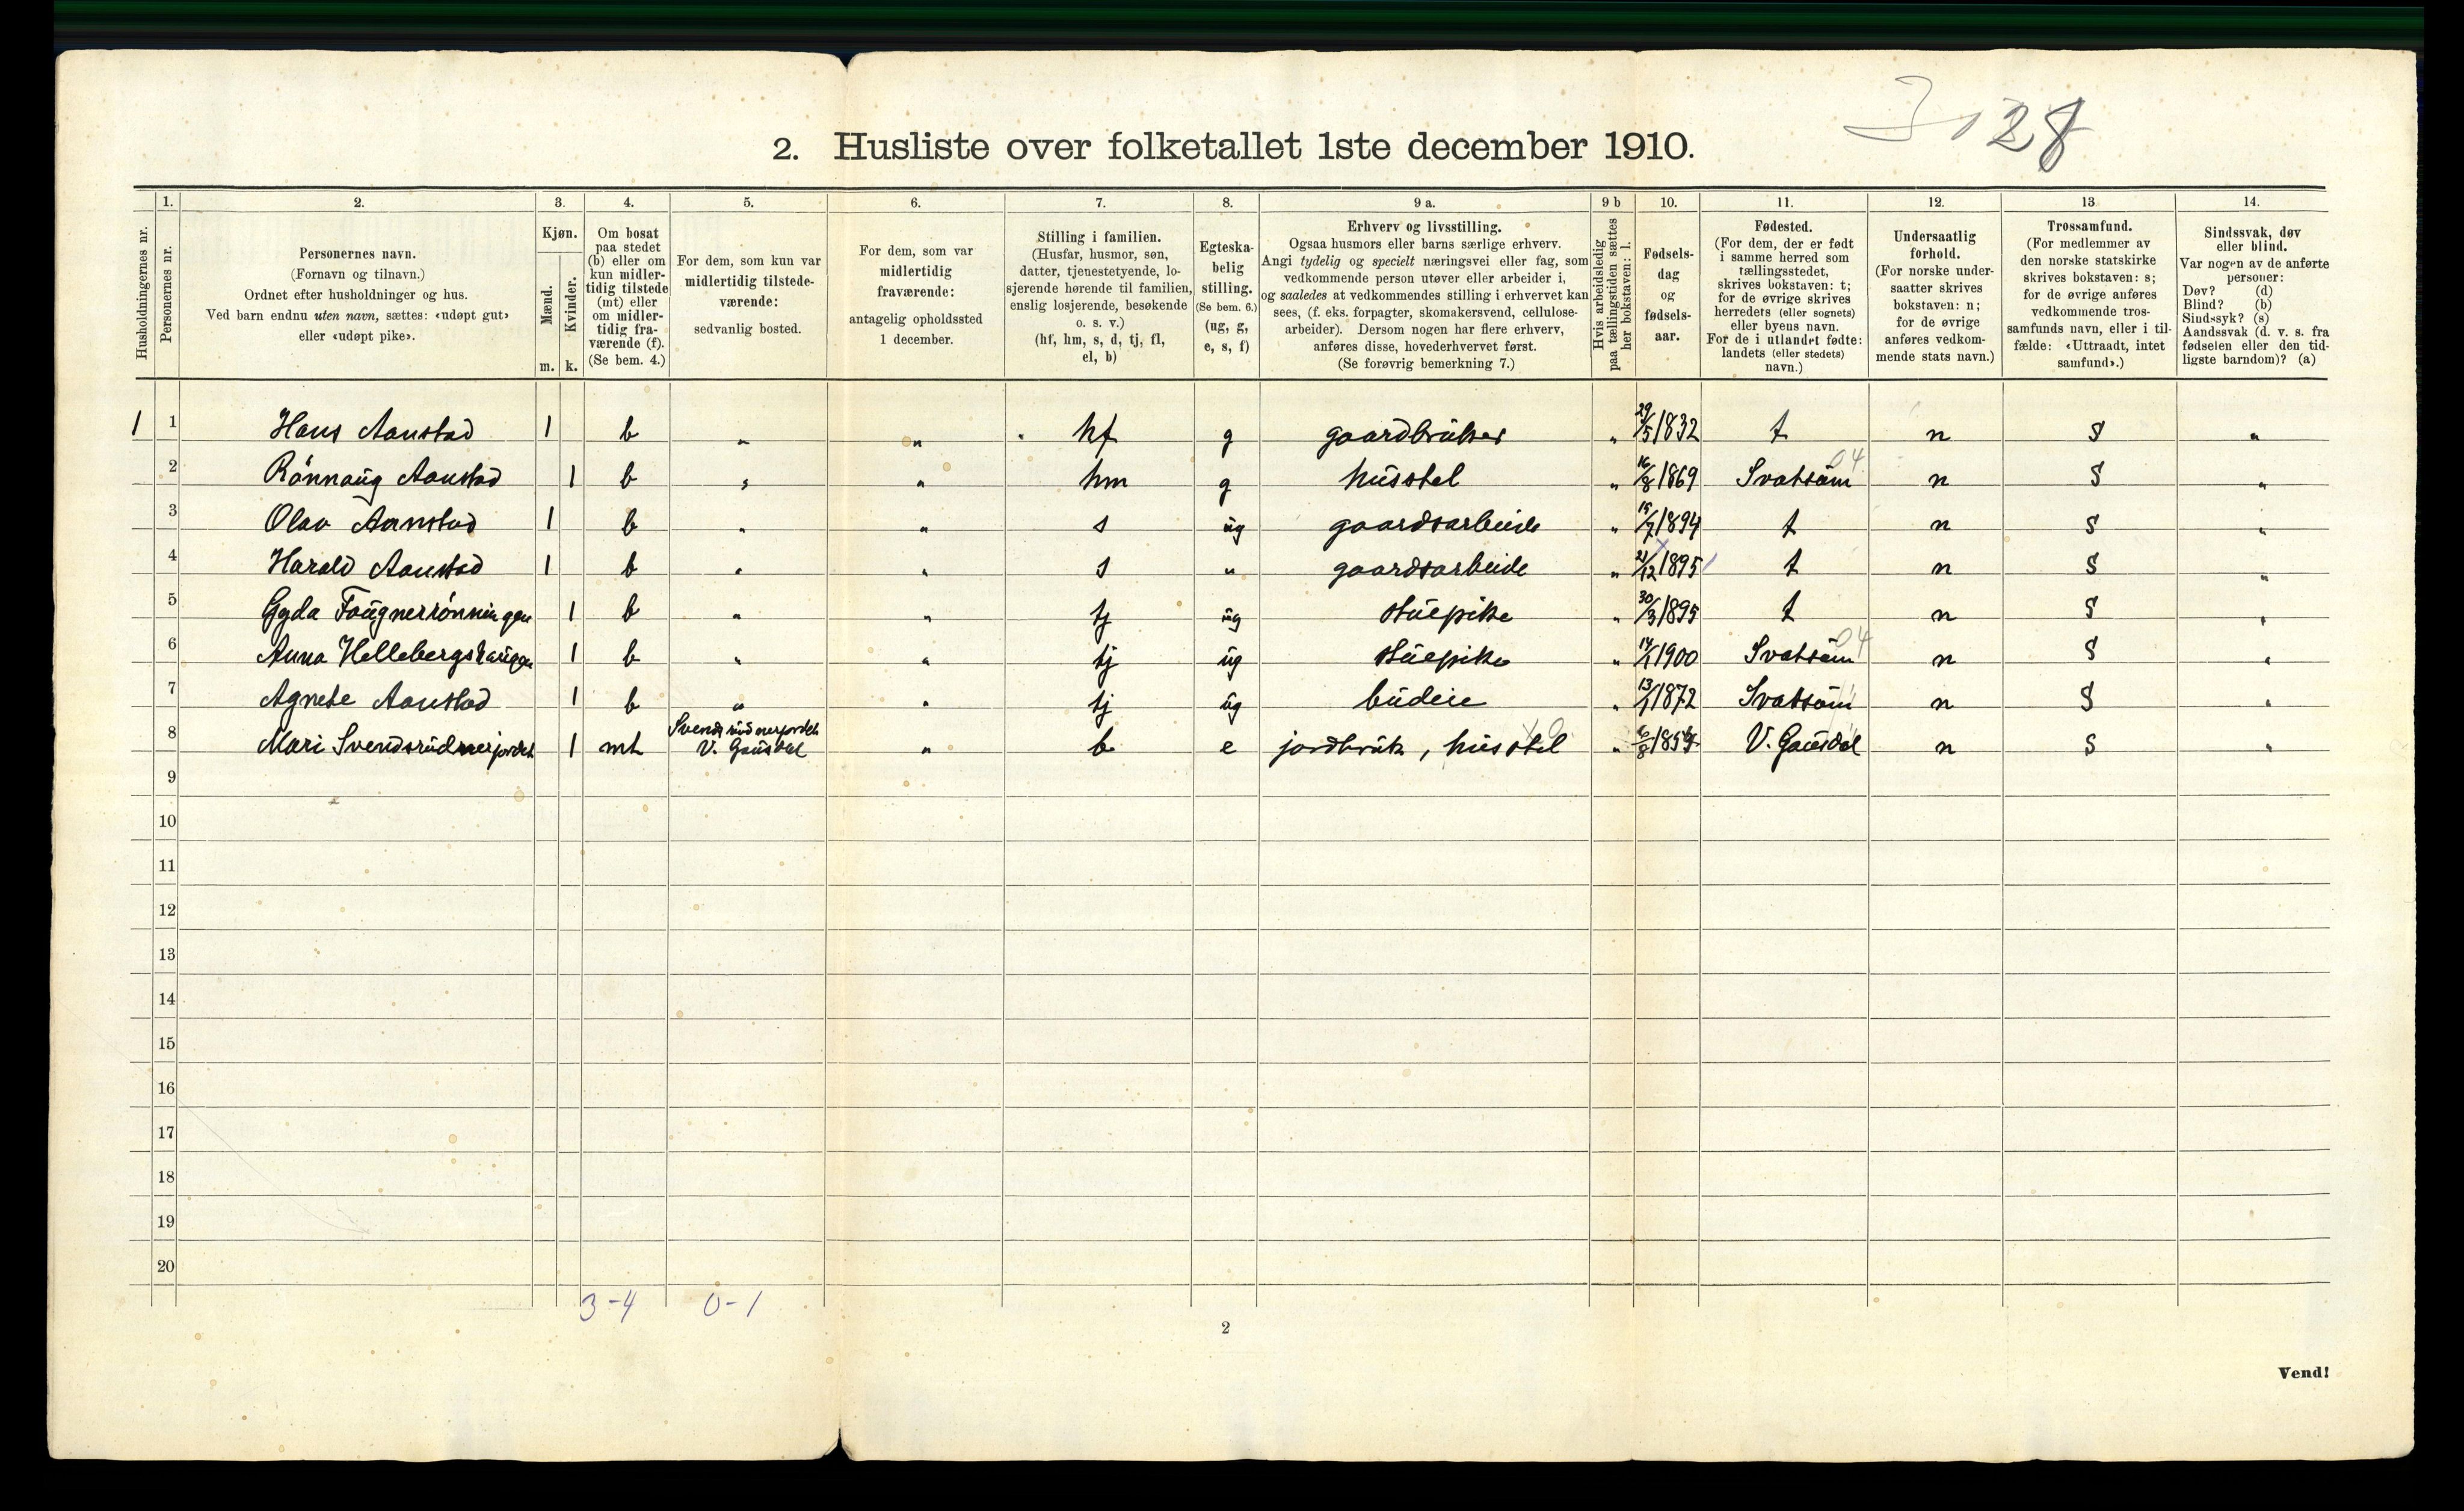 28
2. Husliste over folketallet 1ste december 1910.
Husholdningernes nr.
1.
Personernes nr.
2.
Personernes navn.
(Fornavn og tilnavn.)
Ordnet efter husholdninger og hus.
Ved barn endnu uten navn, sættes: «udøpt gut»
eller «udøpt pike».
3.
Kjøn.
Mænd.
Kvinder.
m. k.
4.
Om bosat
paa stedet
(b) eller om
kun midler-
tidig tilstede
(mt) eller
om midler-
tidig fra-
værende (f).
(Se bem. 4.)
5.
For dem, som kun var
midlertidig tilstede-
værende:
sedvanlig bosted.
6.
For dem, som var
midlertidig
fraværende:
antagelig opholdssted
1 december.
7.
Stilling i familien.
(Husfar, husmor, søn,
datter, tjenestetyende, lo-
sjerende hørende til familien,
enslig losjerende, besøkende
o. s. v.)
(hf, hm, s, d, tj, fl,
el, b)
8.
Egteska-
belig
stilling.
(Se bem. 6.)
(ug, g,
e, s, f)
9 a.
Erhverv og livsstilling.
Ogsaa husmors eller barns særlige erhverv.
Angi tydelig og specielt næringsvei eller fag, som
vedkommende person utøver eller arbeider i,
og saaledes at vedkommendes stilling i erhvervet kan
sees, (f. eks. forpagter, skomakersvend, cellulose-
arbeider). Dersom nogen har flere erhverv,
anføres disse, hovederhvervet først.
(Se forøvrig bemerkning 7.)
9 b
Hvis arbeidsledig
paa tællingstiden sættes
her bokstaven: l.
10.
Fødsels-
dag
og
fødsels-
aar.
11.
Fødested.
(For dem, der er født
i samme herred som
tællingsstedet,
skrives bokstaven: t;
for de øvrige skrives
herredets (eller sognets)
eller byens navn.
For de i utlandet fødte:
landets (eller stedets)
navn.)
12.
Undersaatlig
forhold.
(For norske under-
saatter skrives
bokstaven: n;
for de øvrige
anføres vedkom-
mende stats navn.)
13
Trossamfund.
(For medlemmer av
den norske statskirke
skrives bokstaven: s;
for de øvrige anføres
vedkommende tros-
samfunds navn, eller i til-
fælde: «Uttraadt, intet
samfund».)
14.
Sindssvak, døv
eller blind.
Var nogen av de anførte
personer:
Døv? (d)
Blind? (b)
Sindssyk? (s)
Aandssvak (d. v. s. fra
fødselen eller den tid-
ligste barndom)? (a)
1 1 Hans Aanstad 1 b " " hf g gaardbruker " 29/5 1832 t n S "
2 Rönnaug Aanstad 1 b " " hm g husstel " 16/8 1869 Svatsum 04 n S "
3 Olav Aanstad 1 b " " s ug gaardsarbeide " 15/7 1894 t n S "
4 Harald Aanstad 1 b " " s " gaardsarbeide " 21/12 1895 t n S "
5 Gyda Faugnerrönningen 1 b " " tj ug stuepike " 30/3 1895 t n S "
6 Anna Hellebergshaugen 1 b " " tj ug stuepike " 14/1 1900 Svatsum 04 n S "
7 Agnete Aanstad 1 b " " tj ug budeie " 13/1 1872 Svatsum n S "
8 Mari Svendsrudnerjordet 1 mt Svendsrudnerjordet V. Gausdal " b e jordbruk, husstel " 6/8 V. Gausdal n S "
9
10
11
12
13
14
15
16
17
18
19
20
3-4 0-1
2
Vend!